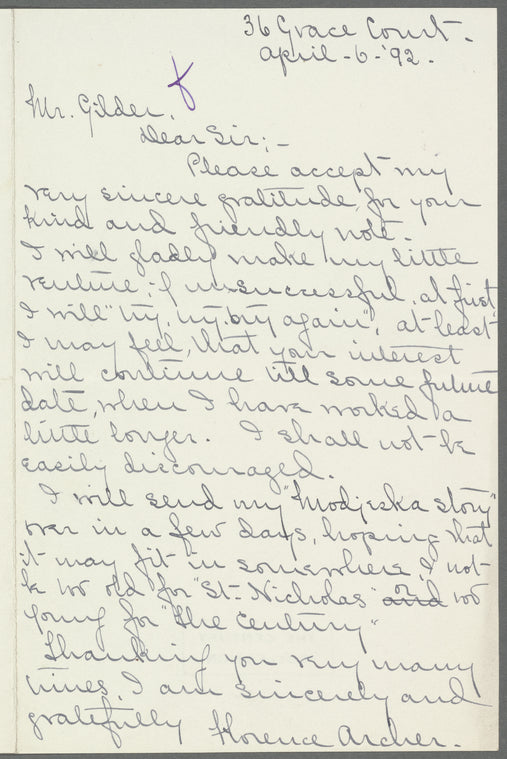 36 Grace Court.
April-6-'92.
Mr. Gilder.
Dear Sir;-
Please accept my
very sincere gratitude for your
kind and friendly note.
I will gladly make my little
venture; if unsuccessful, at first,
I will "try, try, try again", at least
I may feel, that your interest
will continue till some future
date, when I have worked a
little longer. I shall not be
easily discouraged.
I will send my "Modjeska story"
over in a few days, hoping that
it may fit in somewhere, & not
be too old for "St. Nicholas" and or too
young for "The Century"
Thanking you very many
times, I am sincerely and
gratefully Florence Archer.